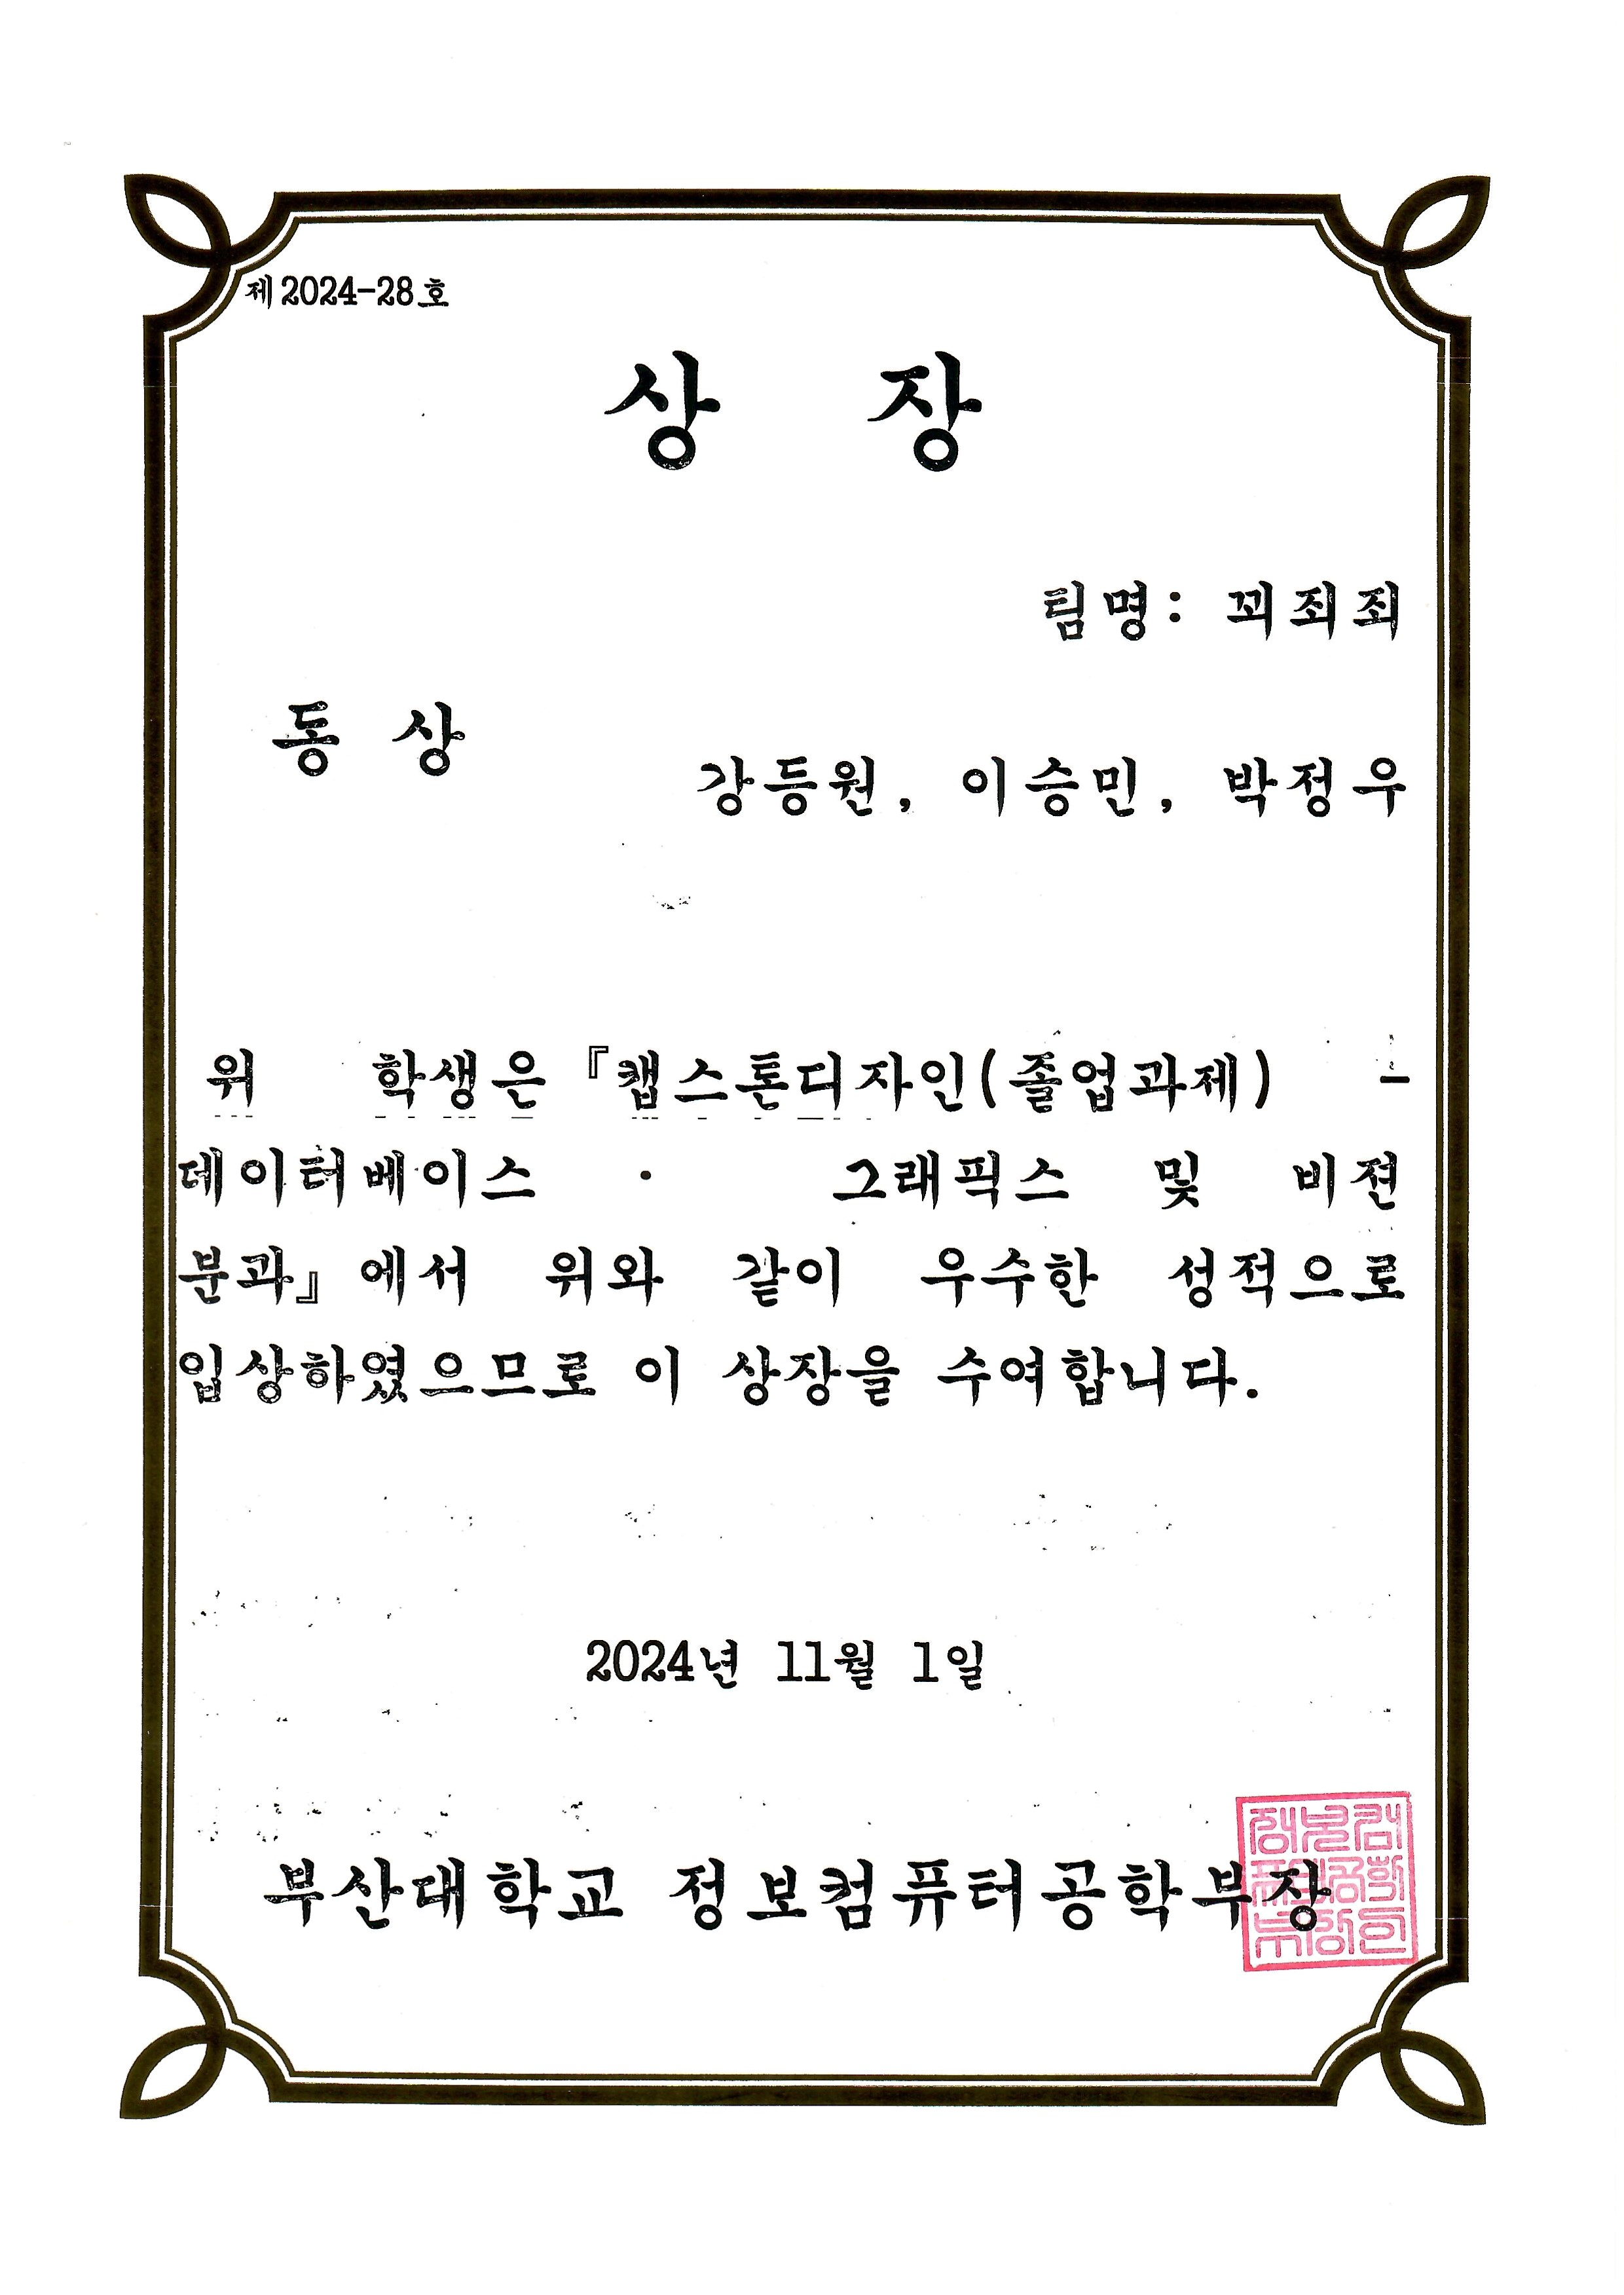 제2024-28호
상 장
팀명: 꾀죄죄
동 상
강등원, 이승민, 박정우
위 학생은『캡스톤디자인(졸업과제) -
데이터베이스 · 그래픽스 및 비젼
분과』에서 위와 같이 우수한 성적으로
입상하였으므로 이 상장을 수여합니다.
2024년 11월 1일
부산대학교 정보컴퓨터공학부장